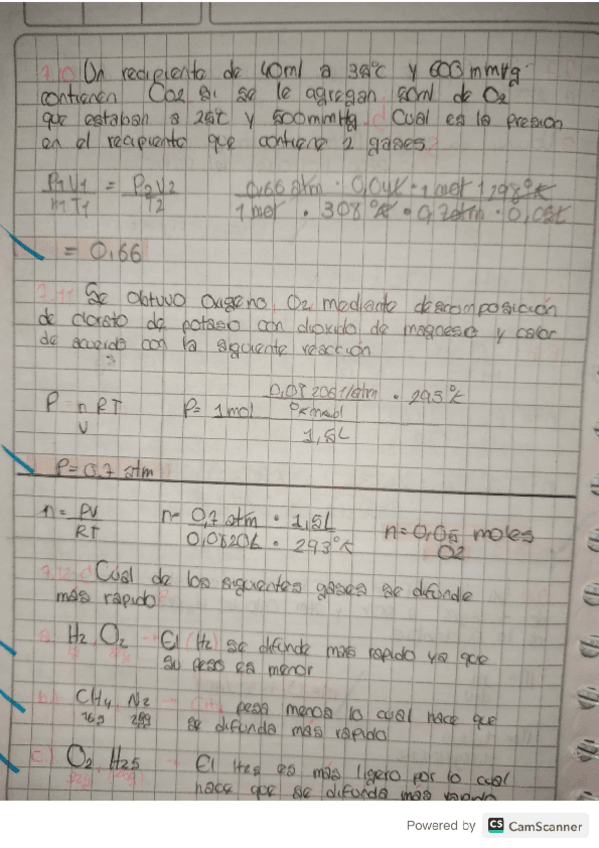 7.10 Un recipiente de 40ml a 35°c y 600 mmHg
contienen CO2 si se le agregan 50ml de O2
que estaban a 25°c y 500mmHg ¿Cual es la presion
en el recipiente que contiene 2 gases?
P1V1 = P2V2
nT1 T2
0,66 atm · 0,04L · 1mol 298°K
1mol · 308°K ·
= 0,66
7.11 Se obtuvo Oxigeno O2 mediante descomposición
de clorato de potasio con dioxido de magneso y calor
de acuerdo con la siguiente reacción
P nRT
V
P= 1mol · 293°K
°K
1,5L
P= 0,7 atm
n= PV
RT
n= 0,7 atm · 1,5L
0,0820L · 293°K
n=0,05 moles
O2
7.12 ¿Cual de los siguientes gases se difunde
más rapido?
a) H2, O2 El (H2) se difunde mas rapido ya que
su peso es menor
b) CH4, N2 CH4 pesa menos lo cual hace que
16g 28g se difunda más rápido
c) O2, H2S El H2s es más ligero por lo cual
hace que se difunda más rapido
Powered by CS CamScanner